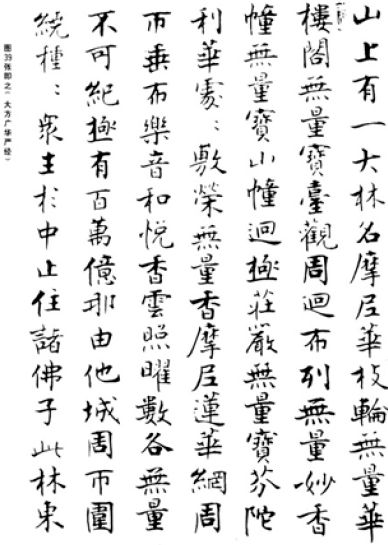 山上有一大林名摩尼華枝輪無量華
樓閣無量寶臺觀周迴布列無量妙香
幢無量寶山幢迴極莊嚴無量寶芬陀
利華處〻敷榮無量香摩尼蓮華網周
帀垂布樂音和悅香雲照曜數各無量
不可紀極有百萬億那由他城周帀圍
繞種〻衆生於中止住諸佛子此林東
图39张即之《大方广华严经》